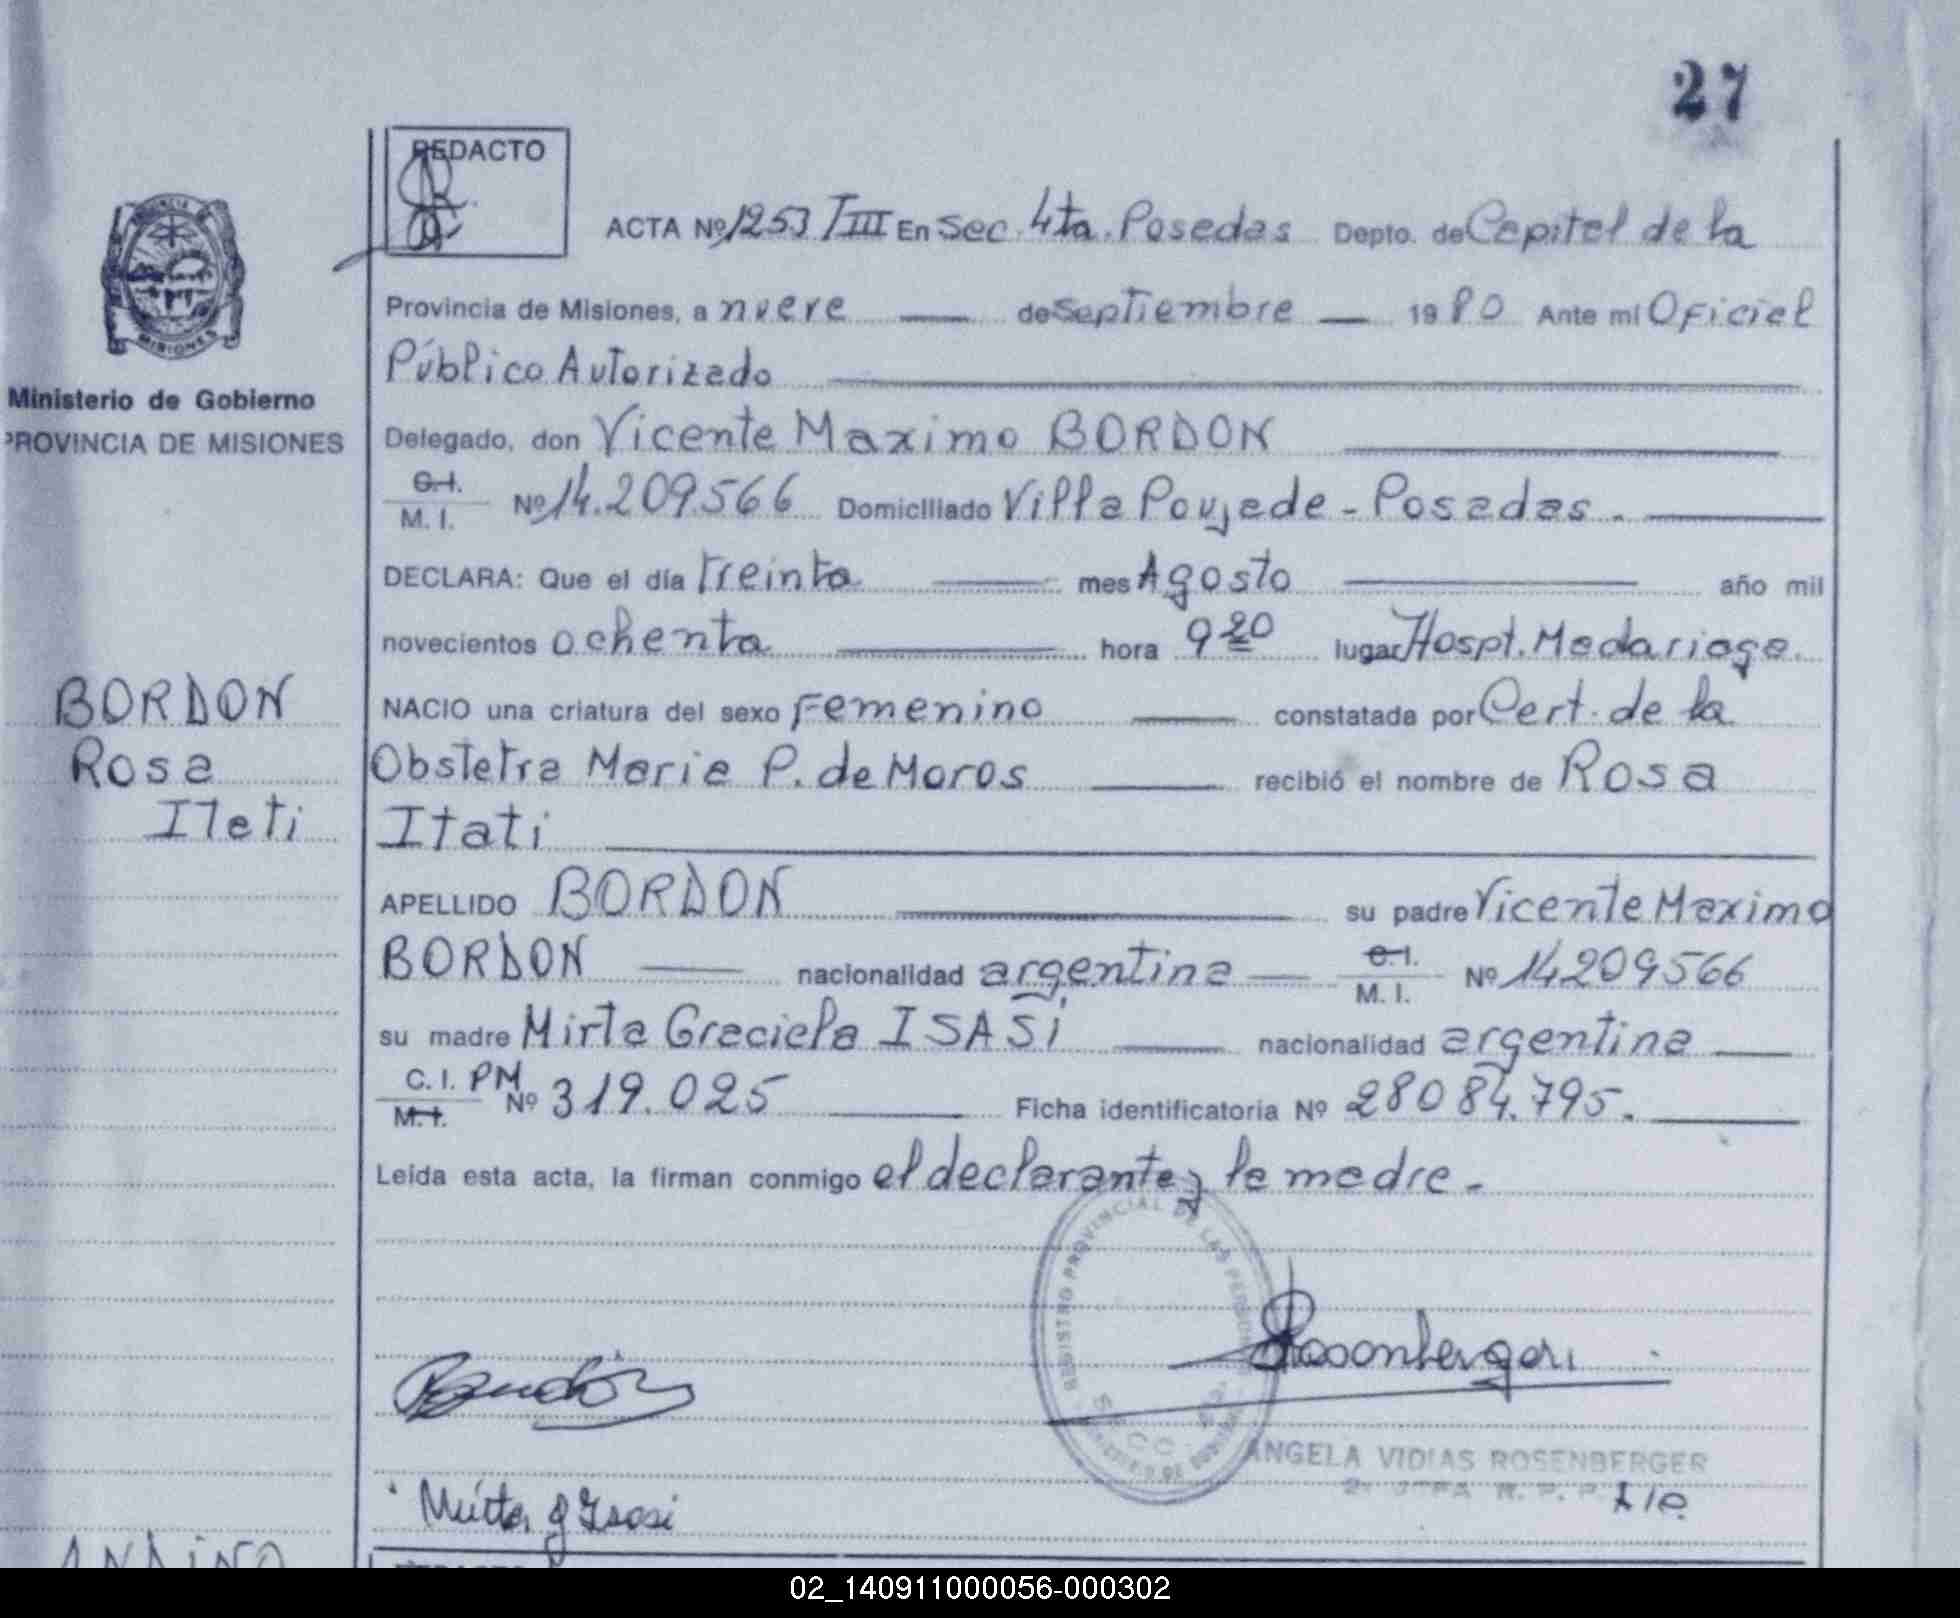 27
REDACTO
ACTA Nº 1253 TIII En Sec. 4ta. Posadas Depto. de Capital de la
PROVINCIA DE
MISIONES
Provincia de Misiones, a nueve de septiembre 1980 Ante mí Oficial
Público Autorizado
Ministerio de Gobierno
PROVINCIA DE MISIONES
Delegado, don Vicente Maximo BORDON
C.I.
M. I. Nº 14.209.566 Domiciliado Villa Poujade - Posadas.
DECLARA: Que el día treinta mes Agosto año mil
novecientos ochenta hora 9 20 lugar Hospt. Madariaga.
BORDON
Rosa
Itati
NACIO una criatura del sexo femenino constatada por Cert. de la
Obstetra Maria P. de Moros recibió el nombre de Rosa
Itati
APELLIDO BORDON su padre Vicente Maximo
BORDON nacionalidad argentina C.I. M. I. Nº 14209566
su madre Mirta Graciela ISASI nacionalidad argentina
C. I. PM
M.I. Nº 319.025 Ficha identificatoria Nº 28084.795.
Leída esta acta, la firman conmigo el declarante y la madre.
REGISTRO PROVINCIAL DE LAS PERSONAS
SECC.
Bordón
Rosenberger
ANGELA VIDIAS ROSENBERGER
R. P. P.
Mirta g Isasi
02_140911000056-000302